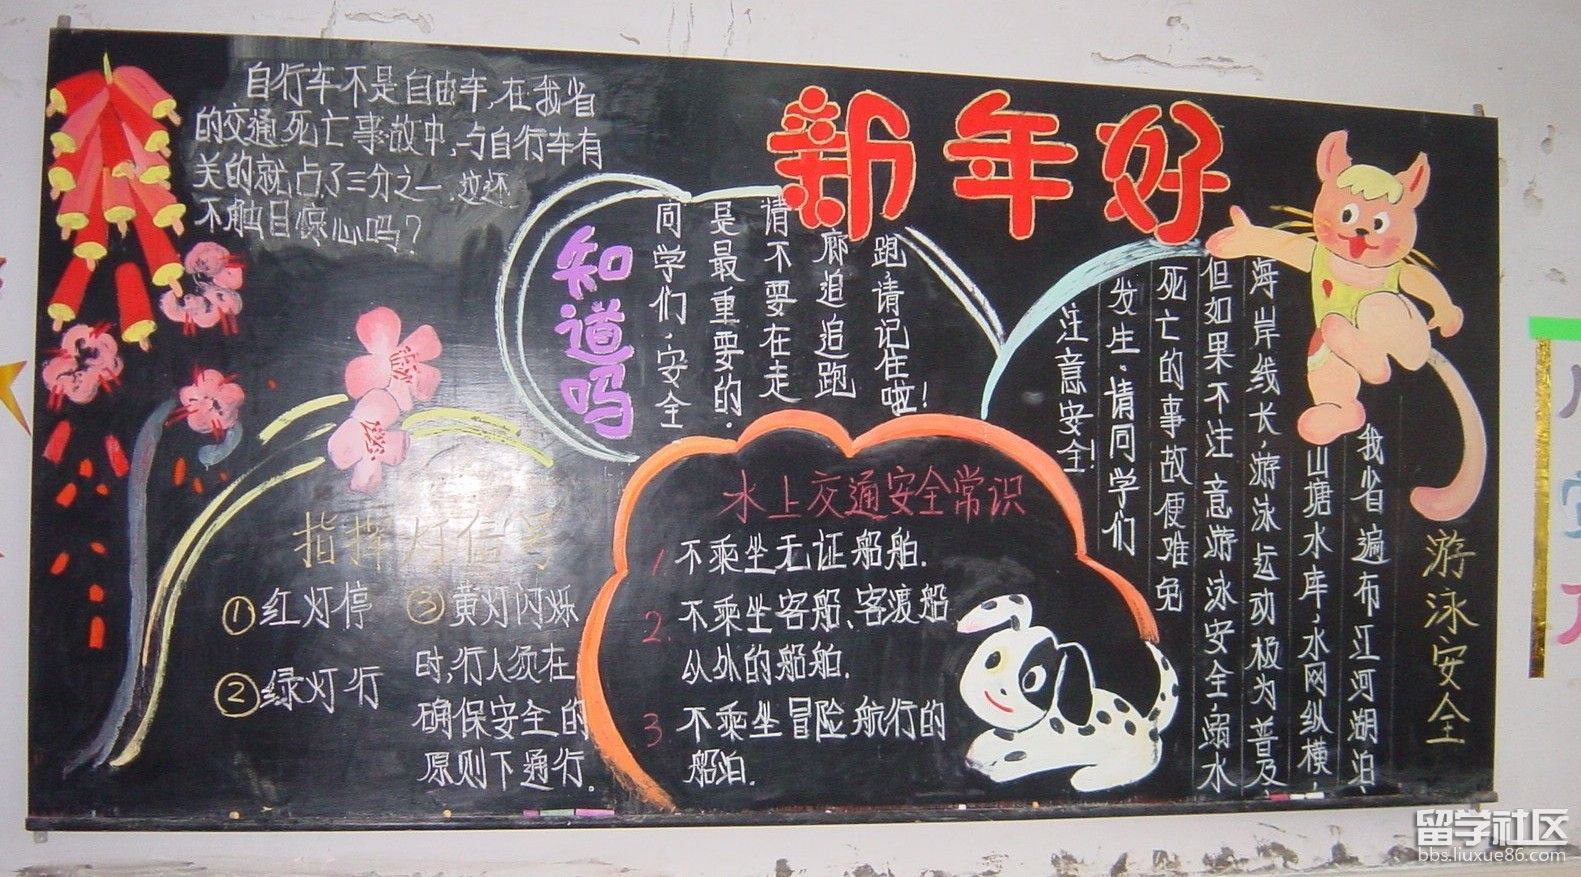 新年好
自行车不是自由车,在我省
的交通死亡事故中,与自行车有
关的就占了三分之一.这还
不触目惊心吗?
知道吗
同学们,安全
是最重要的.
请不要在走
廊追追跑
跑,请记住啦!
指挥灯信号
①红灯停
②绿灯行
③黄灯闪烁
时,行人须在
确保安全的
原则下通行.
水上交通安全常识
1 不乘坐无证船舶.
2. 不乘坐客船、客渡船
以外的船舶.
3 不乘坐冒险航行的
船泊.
游泳安全
我省遍布江河湖泊、
山塘水库,水网纵横,
海岸线长,游泳运动极为普及,
但如果不注意游泳安全,溺水
死亡的事故便难免
发生.请同学们
注意安全!
留学社区
bbs.liuxue86.com